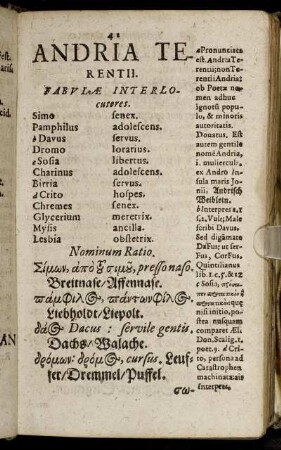 41
ANDRIA TE-
RENTII.
FABVLÆ INTERLO-
cutores.
Simo senex.
Pamphilus adolescens.
b Davus servus.
Dromo lorarius.
c Sosia libertus.
Charinus adolescens.
Birria servus.
d Crito hospes.
Chremes senex.
Glycerium meretrix.
Mysis ancilla.
Lesbia obstetrix.
Nominum Ratio.
Σίμων, ἀπὸ τοῦ σιμοῦ, presso naso.
Breitnase/Affennase.
πάμφιλος, πάντων φίλος.
Liebholdt/Liepolt.
δᾶος Dacus: servile gentis.
Dachs/Walache.
δρόμων: δρόμος, cursus. Leuf-
fer/Dremmel/Puffel.
σω-
a Pronunciata
est. Andria Te-
rentii; non Te-
rentii Andria:
ob Poetæ no-
men adhuc
ignotũ popu-
lo, & minoris
autoritatis.
Donatus, Est
autem gentile
nomẽ Andria,
i. muliercula
ex Andro In-
sula maris Jo-
nii. Andrisch
Weiblein.
b Interpres 1.
15. Vulc; Male
scribi Davus.
Sed digãmate
DaFus: ut ser-
Fus, CorFus.
Quintilianus
lib 1. c. 5. & 12
c Sosia,
nisi initio, po-
stea nusquam
comparet Æli.
Don. Scalig. 1.
poet. 9. d Cri-
to, persona ad
Catastrophen
machinata ais
Interpres.